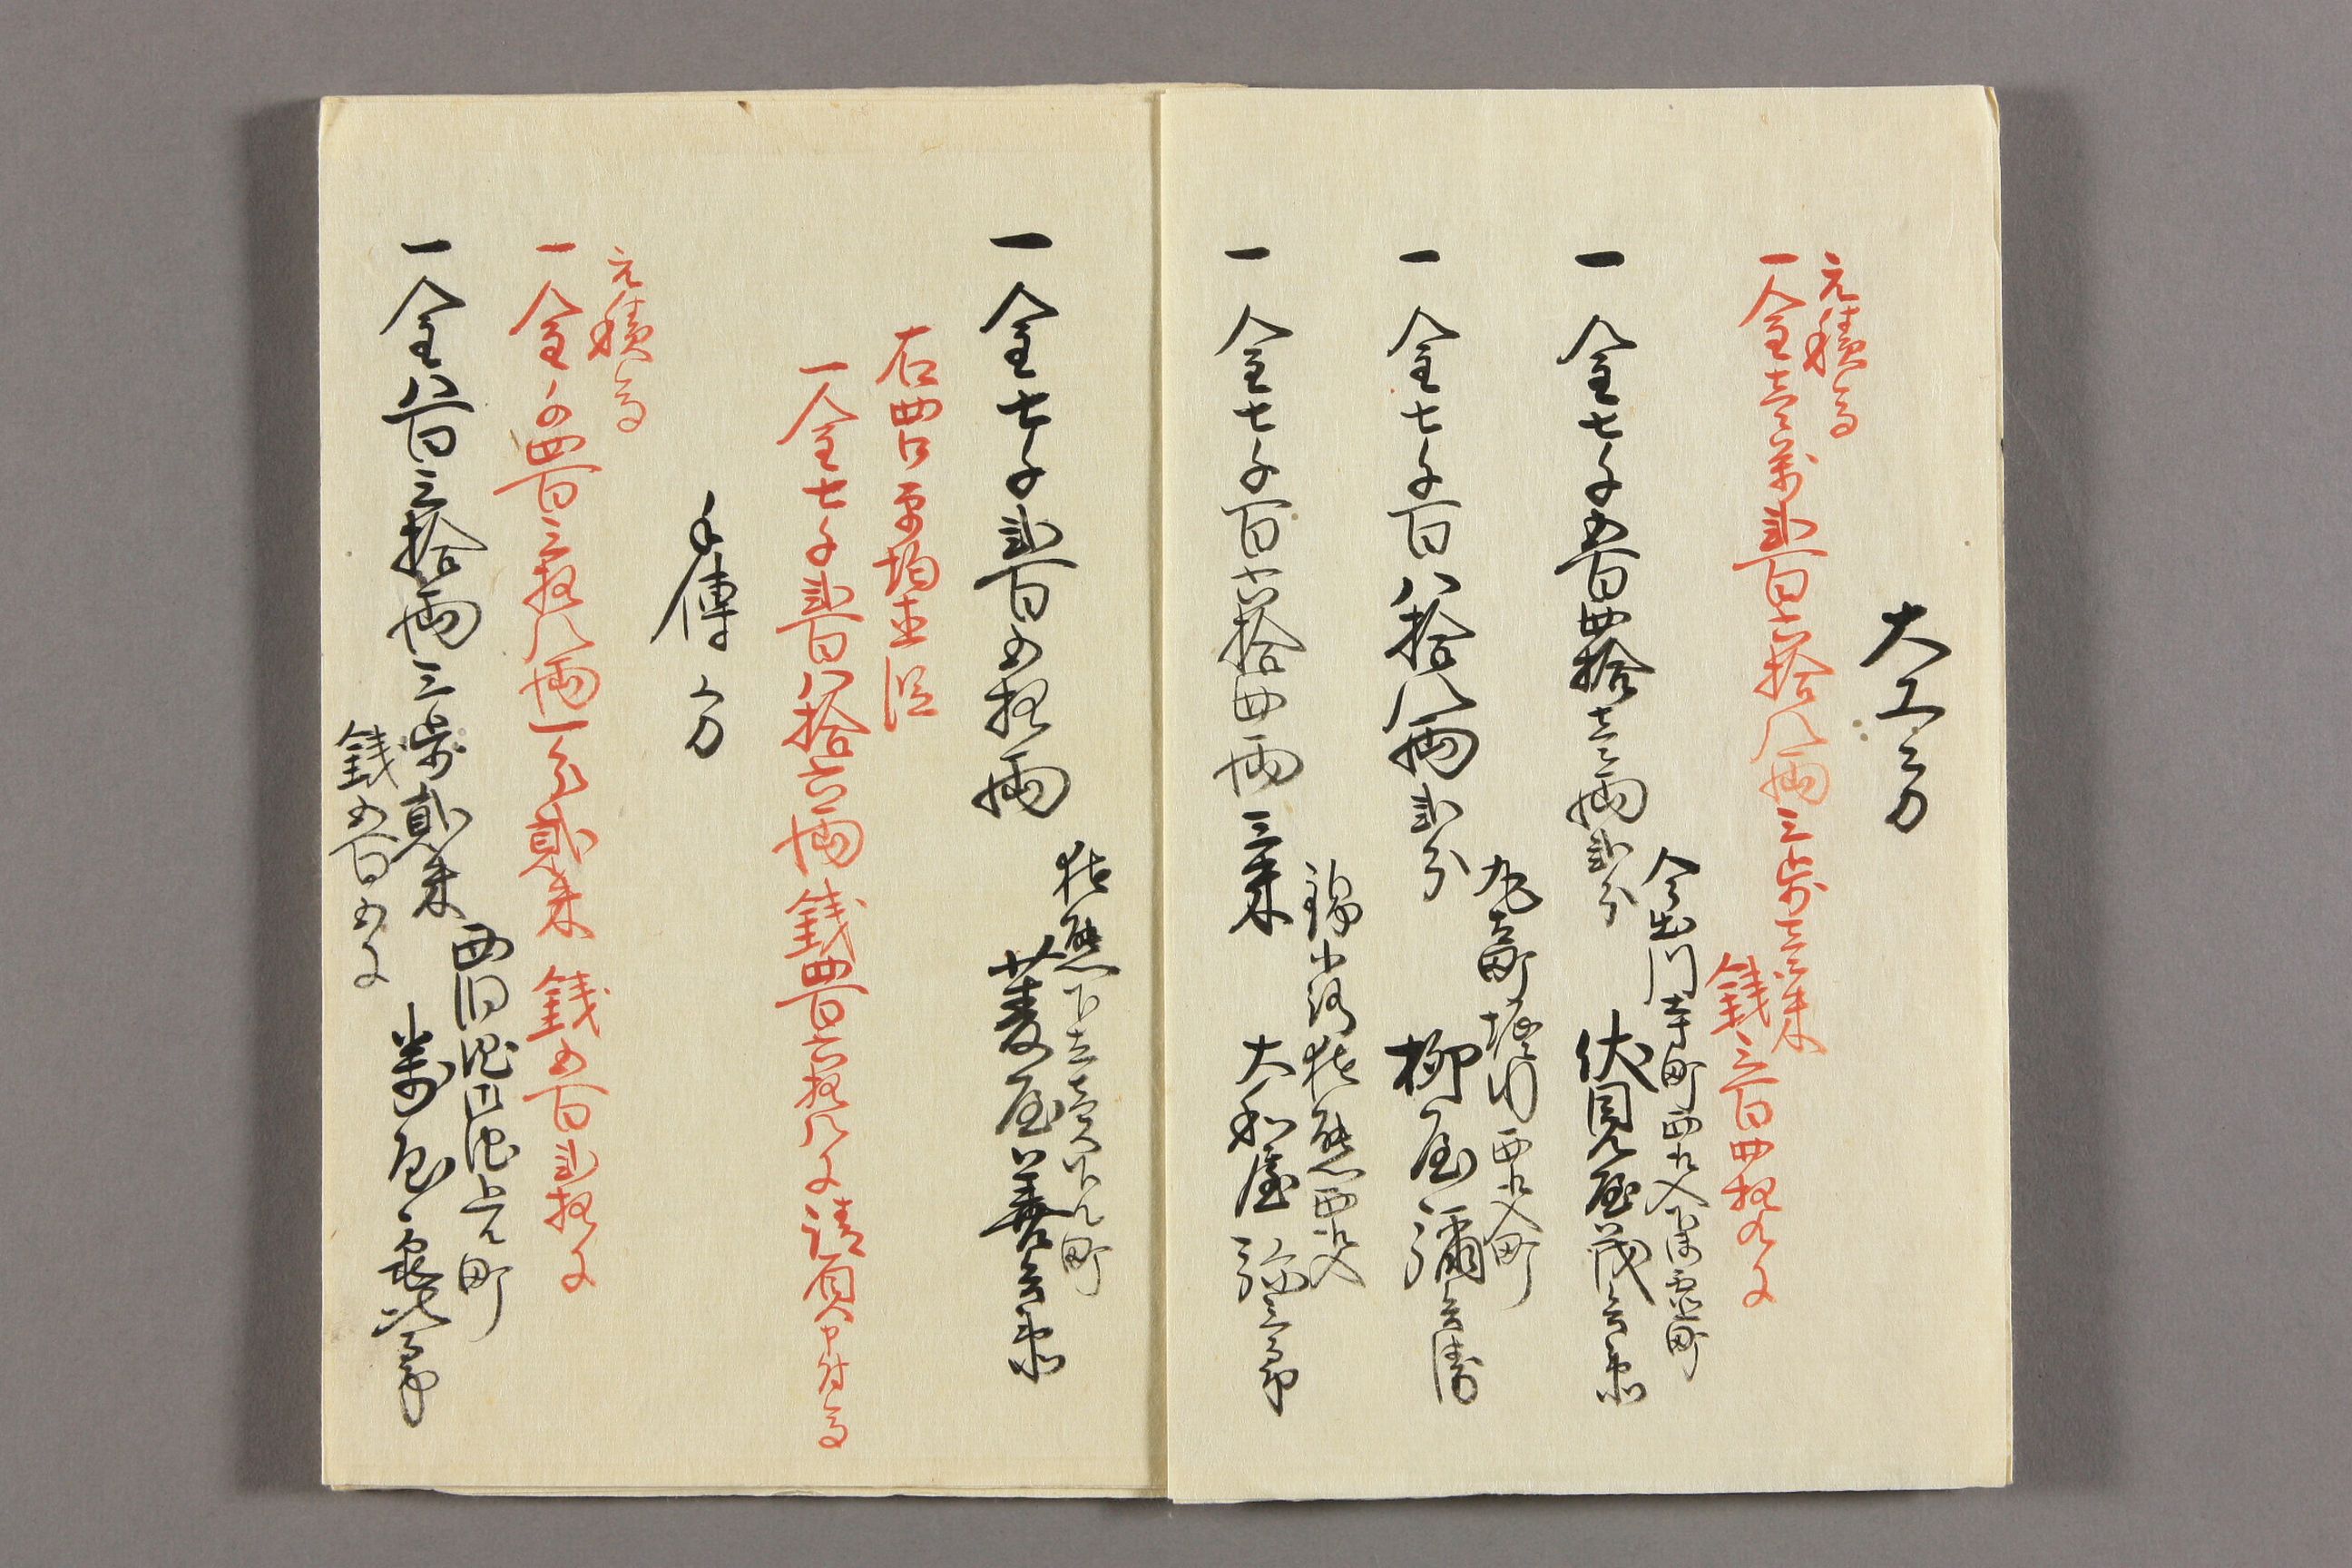 大工方
元積高
一金壱萬弐百六拾八両三歩壱朱
銭三百四拾九文
今出川寺町西え入下ル町
一金七千五百四拾壱両弐分
伏見屋茂兵衛
丸太町堀川西え入町
一金七千百八拾八両弐分
柳屋彌兵衛
錦小路猪熊西え入
一金七千百六拾四両三朱
大和屋弥三郎
猪熊下立売下ル町
一金七千弐百五拾両
菱屋善兵衛
右四口平均直段
一金七千弐百八拾六両銭四百六拾八文請負申付高
手傳方
元積高
一金千四百三拾八両一分貳朱銭五百弐拾文
一金八百三拾両三歩貳朱
銭五百五文
西洞院上ル町
萬屋亀次郎